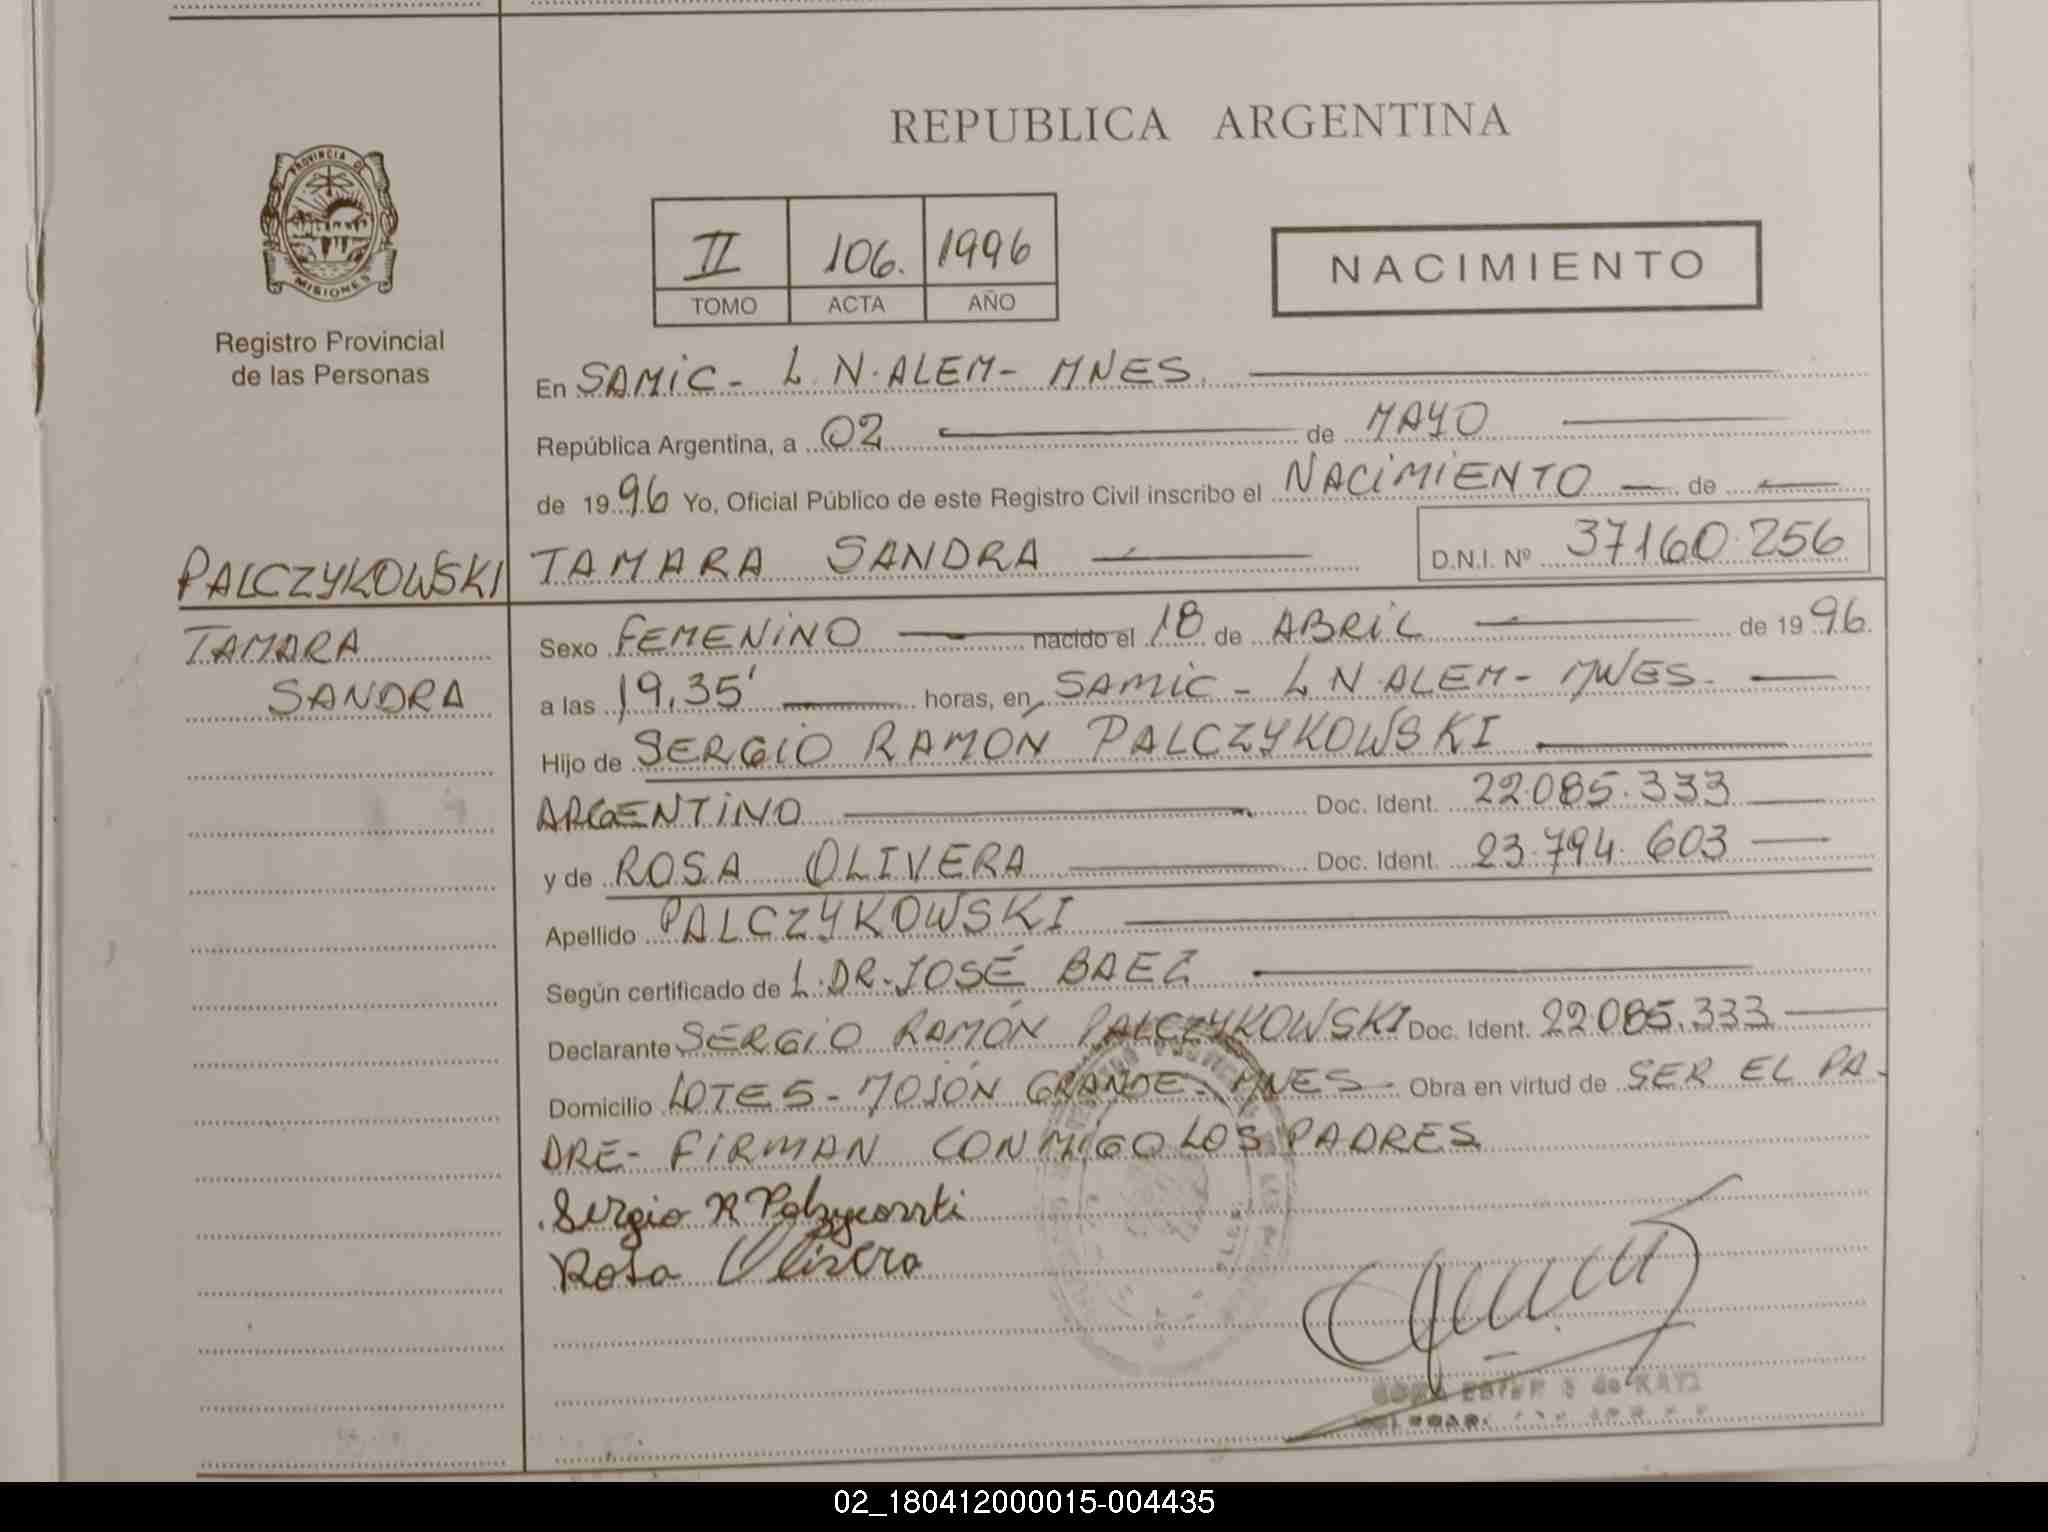 REPUBLICA ARGENTINA
PROVINCIA DE
MISIONES
Registro Provincial
de las Personas
II 106. 1996
TOMO ACTA AÑO
NACIMIENTO
En SAMIC - L.N. ALEM - MNES.
República Argentina, a 02 de MAYO
de 1996 Yo, Oficial Público de este Registro Civil inscribo el NACIMIENTO de
PALCZYKOWSKI TAMARA SANDRA D.N.I. Nº 37160.256
TAMARA
SANDRA
Sexo FEMENINO nacido el 18 de ABRIL de 1996.
a las 19,35' horas, en SAMIC - L N. ALEM - MNES.
Hijo de SERGIO RAMÓN PALCZYKOWSKI
ARGENTINO Doc. Ident. 22.085.333
y de ROSA OLIVERA Doc. Ident. 23.794.603
Apellido PALCZYKOWSKI
Según certificado de L. DR. JOSÉ BAEZ
Declarante SERGIO RAMÓN PALCZYKOWSKI Doc. Ident. 22.085.333
Domicilio LOTE 5 - MOJÓN GRANDE - MNES - Obra en virtud de SER EL PA-
DRE - FIRMAN CONMIGO LOS PADRES
Sergio R
Rosa Olivera
02_180412000015-004435